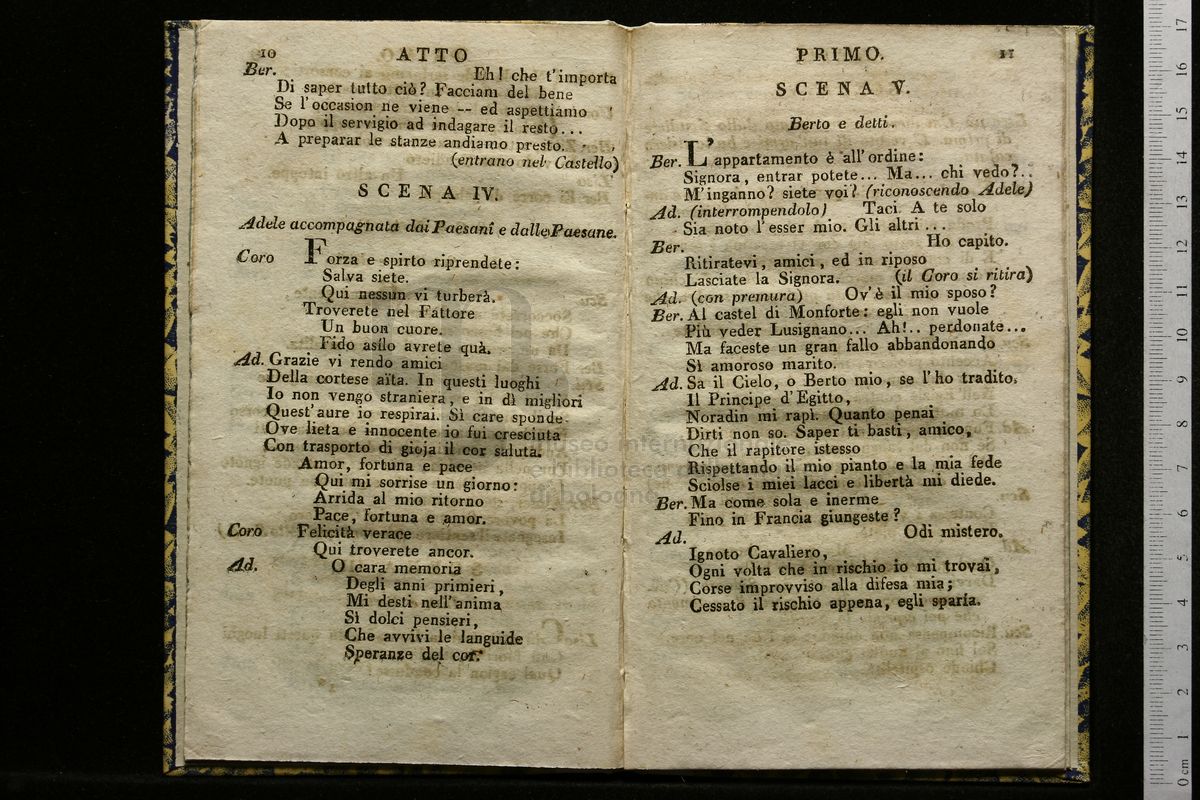 10 ATTO
Ber. Eh! che t'importa
Di saper tutto ciò? Facciam del bene
Se l'occasion ne viene -- ed aspettiamo
Dopo il servigio ad indagare il resto...
A preparar le stanze andiamo presto.
(entrano nel Castello)
SCENA IV.
Adele accompagnata dai Paesani e dalle Paesane.
Coro Forza e spirto riprendete:
Salva siete.
Qui nessun vi turberà.
Troverete nel Fattore
Un buon cuore.
Fido asilo avrete quà.
Ad. Grazie vi rendo amici
Della cortese aïta. In questi luoghi
Io non vengo straniera, e in dì migliori
Quest'aure io respirai. Sì care sponde
Ove lieta e innocente io fui cresciuta
Con trasporto di gioja il cor saluta.
Amor, fortuna e pace
Qui mi sorrise un giorno:
Arrida al mio ritorno
Pace, fortuna e amor.
Coro Felicità verace
Qui troverete ancor.
Ad. O cara memoria
Degli anni primieri,
Mi desti nell'anima
Sì dolci pensieri,
Che avvivi le languide
Speranze del cor.
PRIMO. 11
SCENA V.
Berto e detti.
Ber. L'appartamento è all'ordine:
Signora, entrar potete... Ma... chi vedo?..
M'inganno? siete voi? (riconoscendo Adele)
Ad. (interrompendolo) Taci. A te solo
Sia noto l'esser mio. Gli altri...
Ber. Ho capito.
Ritiratevi, amici, ed in riposo
Lasciate la Signora. (il Coro si ritira)
Ad. (con premura) Ov'è il mio sposo?
Ber. Al castel di Monforte: egli non vuole
Più veder Lusignano... Ah!.. perdonate...
Ma faceste un gran fallo abbandonando
Sì amoroso marito.
Ad. Sa il Cielo, o Berto mio, se l'ho tradito.
Il Principe d'Egitto,
Noradin mi rapì. Quanto penai
Dirti non so. Saper ti basti, amico,
Che il rapitore istesso
Rispettando il mio pianto e la mia fede
Sciolse i miei lacci e libertà mi diede.
Ber. Ma come sola e inerme
Fino in Francia giungeste?
Ad. Odi mistero.
Ignoto Cavaliero,
Ogni volta che in rischio io mi trovai,
Corse improvviso alla difesa mia;
Cessato il rischio appena, egli sparìa.